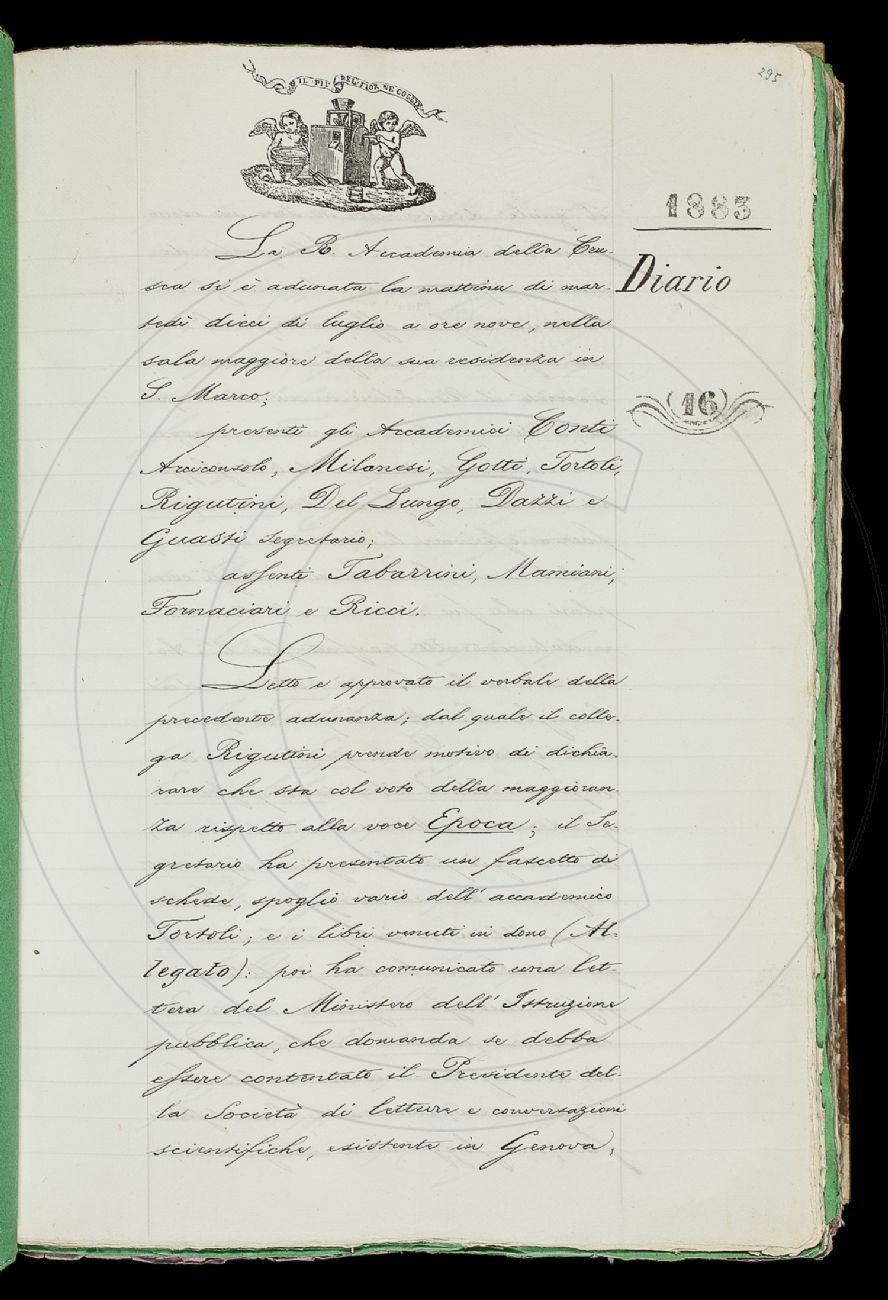 IL PIÙ BEL FIOR NE COGLIE
295
1883
Diario
16
La R. Accademia della Cru-
sca si è adunata la mattina di mar-
tedì dieci di luglio a ore nove, nella
sala maggiore della sua residenza in
S. Marco;
presenti gli Accademici Conti
Arciconsolo, Milanesi, Gotti, Tortoli,
Rigutini, Del Lungo, Dazzi e
Guasti segretario;
assenti Tabarrini, Mamiani,
Fornaciari e Ricci.
Letto e approvato il verbale della
precedente adunanza; dal quale il colle-
ga Rigutini prende motivo di dichia-
rare che sta col voto della maggioran-
za rispetto alla voce Epoca; il Se-
gretario ha presentato un fascetto di
schede, spoglio vario dell' accademico
Tortoli; e i libri venuti in dono (Al-
legato): poi ha comunicato una let-
tera del Ministero dell' Istruzione
pubblica, che domanda se debba
essere contentato il Presidente del-
la Società di letture e conversazioni
scientifiche, esistente in Genova,